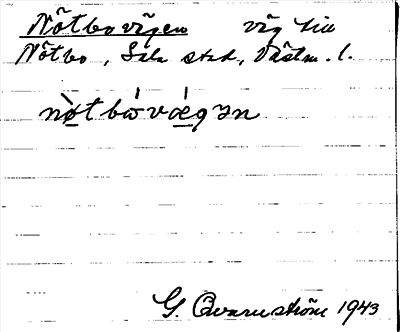 Nötbovägen väg till
Nötbo, Sala stad, Västm. l.
nø̀tbω̍væ̍gən
G. Qvarnström 1943